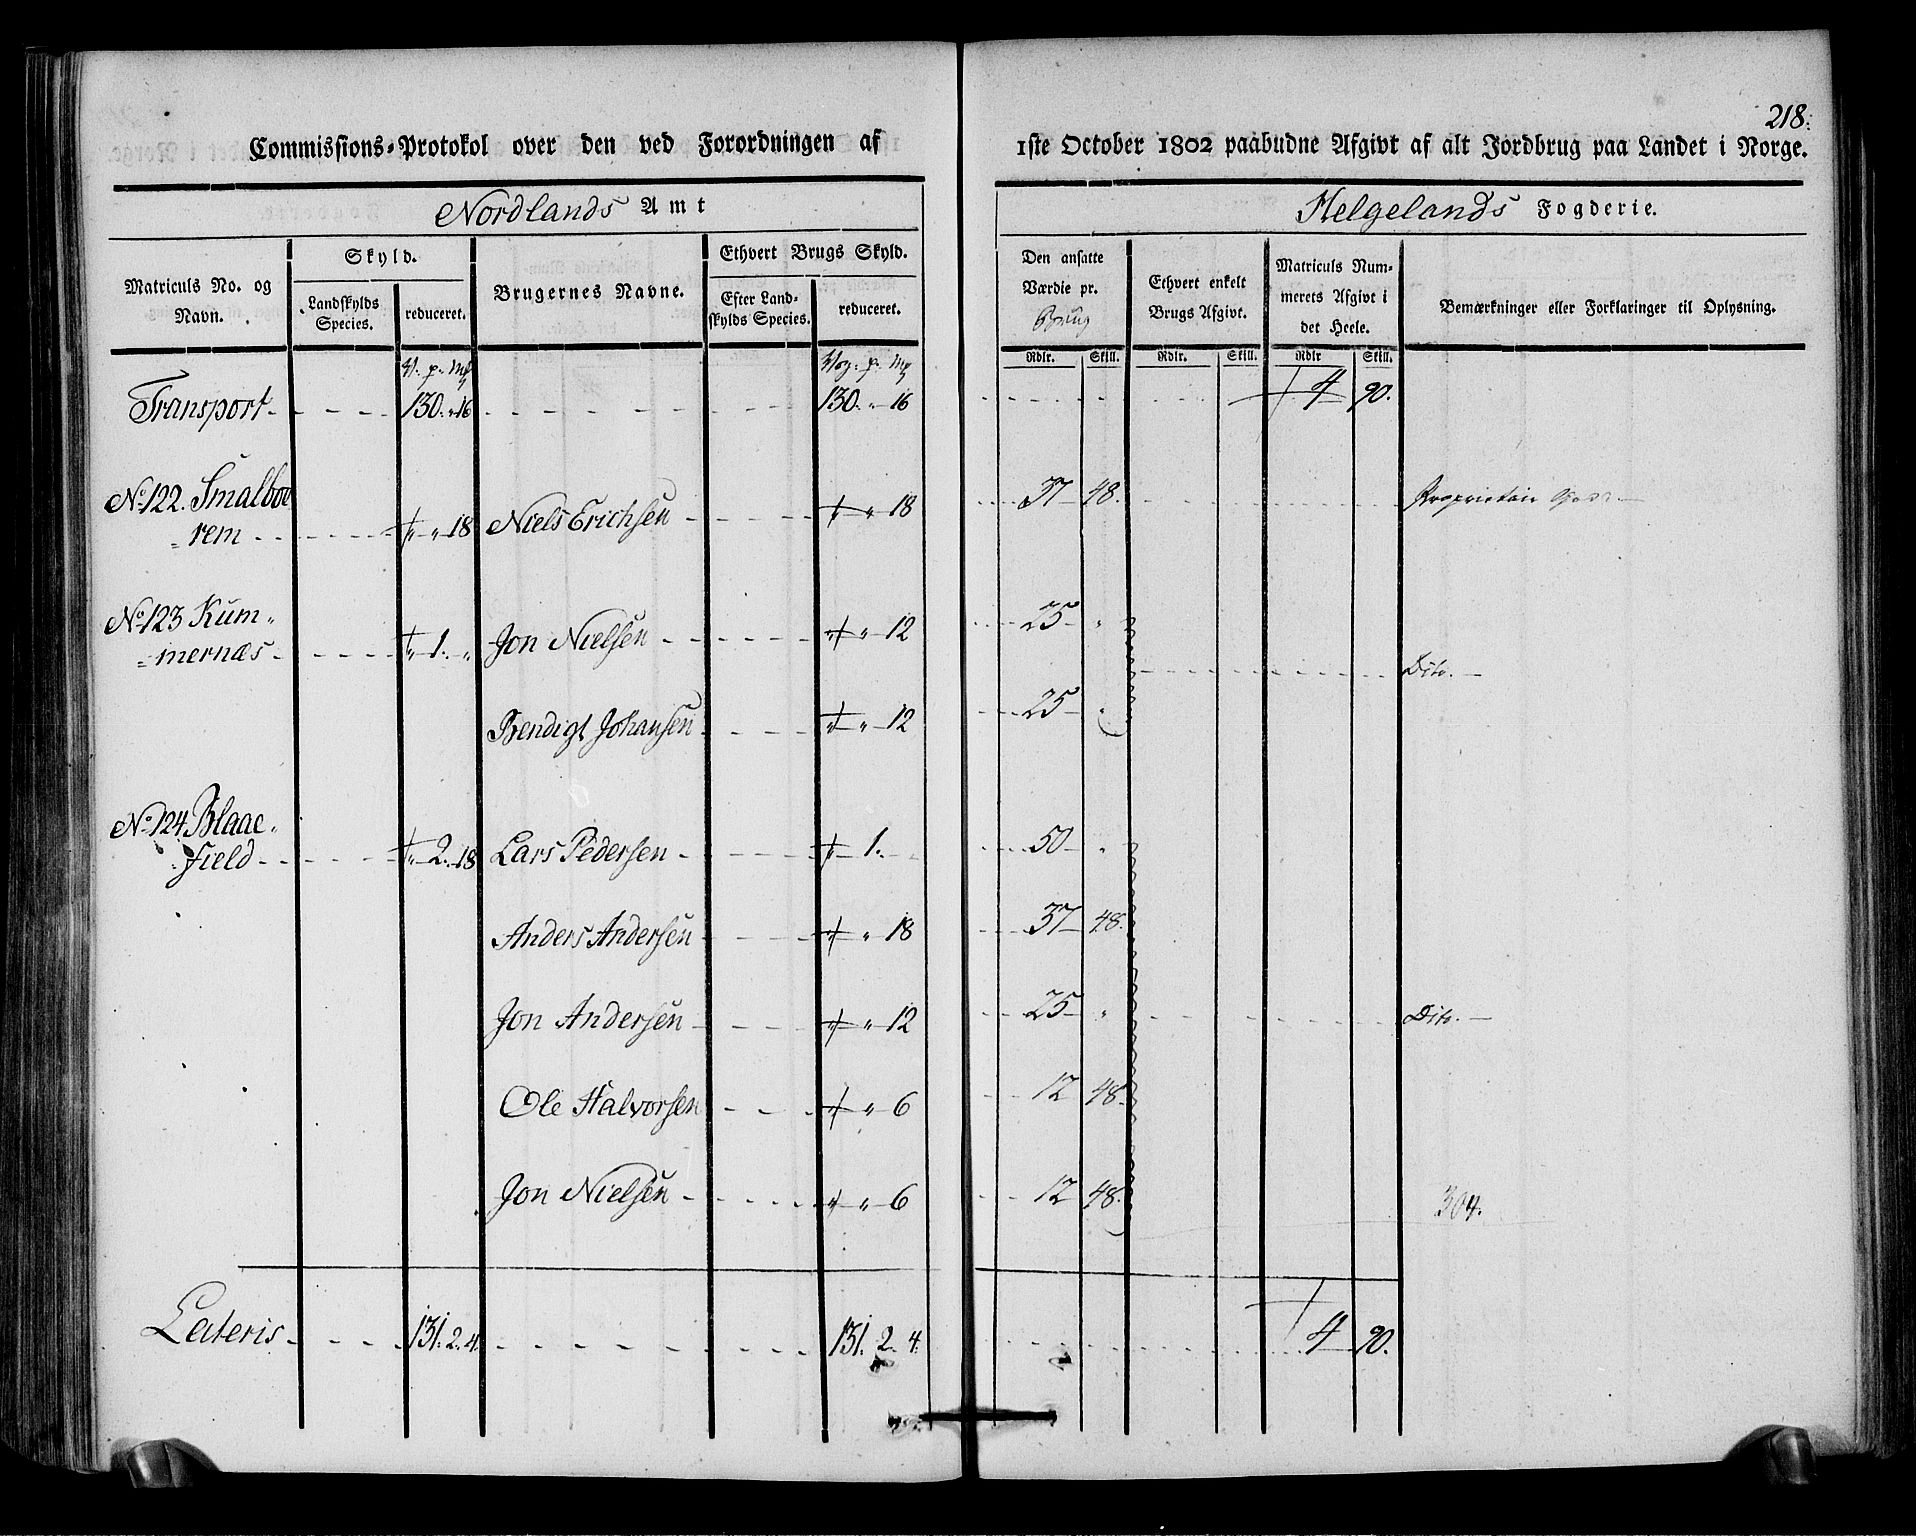 218.
Commissions-Protokol over den ved Forordningen af 1ste October 1802 paabudne Afgivt af alt Jordbrug paa Landet i Norge.
Nordlands Amt
Helgelands Fogderie.
Matriculs No. og Navn.
Skyld.
Landskylds Species.
reduceret.
Brugernes Navne.
Ethvert Brugs Skyld.
Efter Landskylds Species.
reduceret.
Den ansatte Værdie pr. Brug
Ethvert enkelt Brugs Afgivt.
Matriculs Nummerets Afgivt i det Heele.
Bemærkninger eller Forklaringer til Oplysning.
Rdlr. Skill. Rdlr. Skill. Rdlr Skill.
V. p. Mk Vog. p. Mk
Transport 130. " 16 130. " 16 4 90.
No. 122. Smalboe
=rem " " 18 Niels Erichsen " " 18 37 48. Proprietair Gods
No. 123 Kum"
=mernæs " 1. " Jon Nielsen " " 12 25 "
Dito.
Bendigt Johansen " " 12 25 "
No. 124 Blaae"
field " 2. 18 Lars Pedersen " 1. 50 "
Anders Andersen " " 18 37 48.
Jon Andersen " " 12 25 " Dito.
Ole Halvorsen " " 6 12 48.
Jon Nielsen " " 6 12 48. 304.
Lateris 131. 2. 4. 131. 2. 4. 4 90.